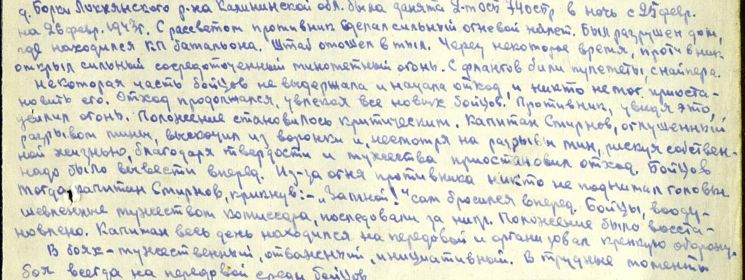 д. Борки Локнянского р-на Калининской обл. была занята 2-м осб 74 осбр в ночь с 25 февр.
на 26 февр. 1943г. С рассветом противник сделал сильный огневой налет. Был разрушен дом,
где находился КП батальона. Штаб отошел в тыл. Через некоторое время, противник
открыл сильный сосредоточенный минометный огонь. С флангов били пулеметы, снайпера.
Некоторая часть бойцов не выдержала и начала отход, и никто не мог приоста-
новить его. Отход продолжался, увлекая все новых бойцов. Противник, увидя это,
усилил огонь. Положение становилось критическим. Капитан Смирнов, оглушенный
разрывом мины, выскочил из воронки и, несмотря на разрывы мин, рискуя собствен-
ной жизнью, благодаря твердости и мужества приостановил отход. Бойцов
надо было вывести вперед. Из-за огня противника никто не поднимал головы.
Тогда, капитан Смирнов, крикнув:- „За мной!" сам бросился вперед. Бойцы, вооду-
шевленные мужеством комиссара, последовали за ним. Положение было восста-
новлено. Капитан весь день находился на передовой и организовал крепкую оборону.
В боях - мужественный, отважный, инициативный. В трудные моменты
боя всегда на передовой среди бойцов